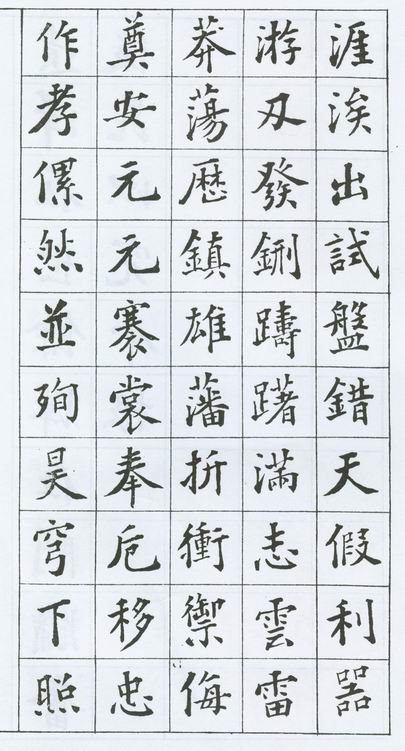 涯涘出試盤錯天假利器
游刃發鉶躊躇滿志雲雷
莽蕩歷鎮雄藩折衝禦侮
奠安元元褰裳奉卮移忠
作孝傫然並殉昊穹下照